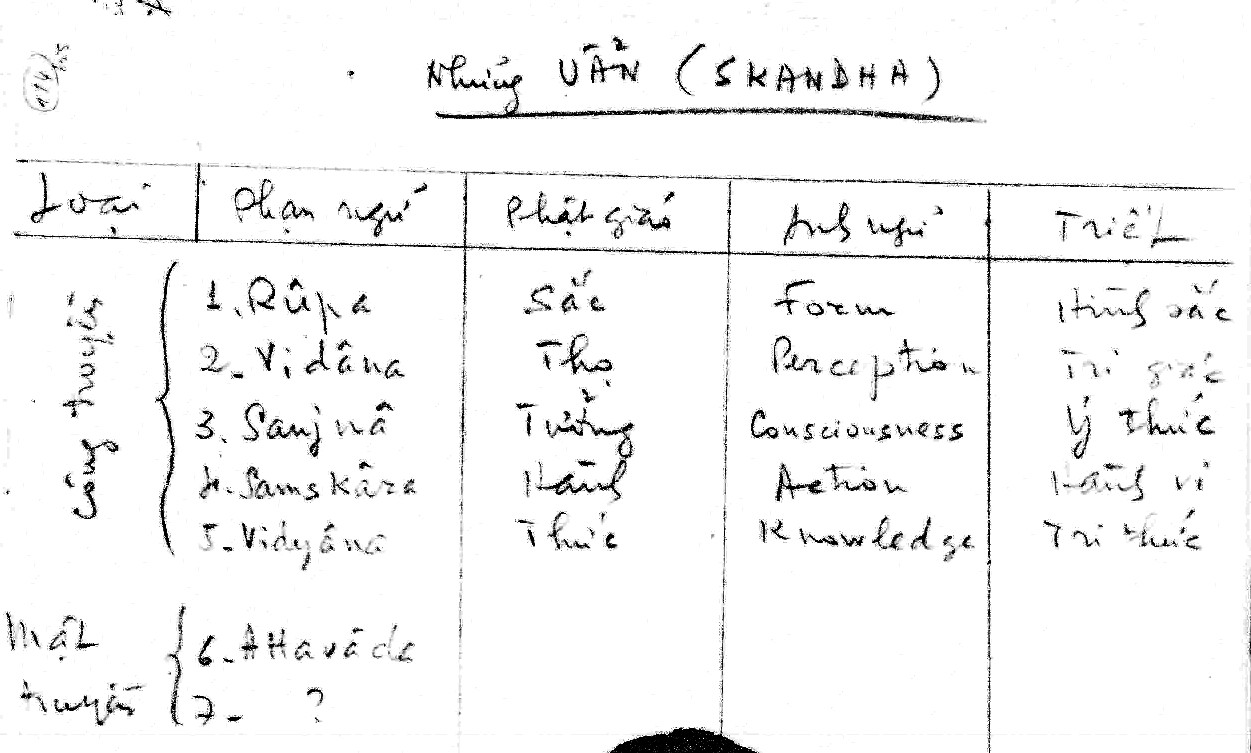 114
Những VẪN (SKANDHA)
Loại Phạn ngữ Phật giáo Anh ngữ Triết
Công truyền
1. Rûpa Sắc Form Hình sắc
2. Vidâna Thọ Perception Tri giác
3. Sanjnâ Tưởng Consciousness Ý thức
4. Samskâra Hành Action Hành vi
5. Vidyâna Thức Knowledge Tri thức
Mật truyền
6. Attavâda
7. ?